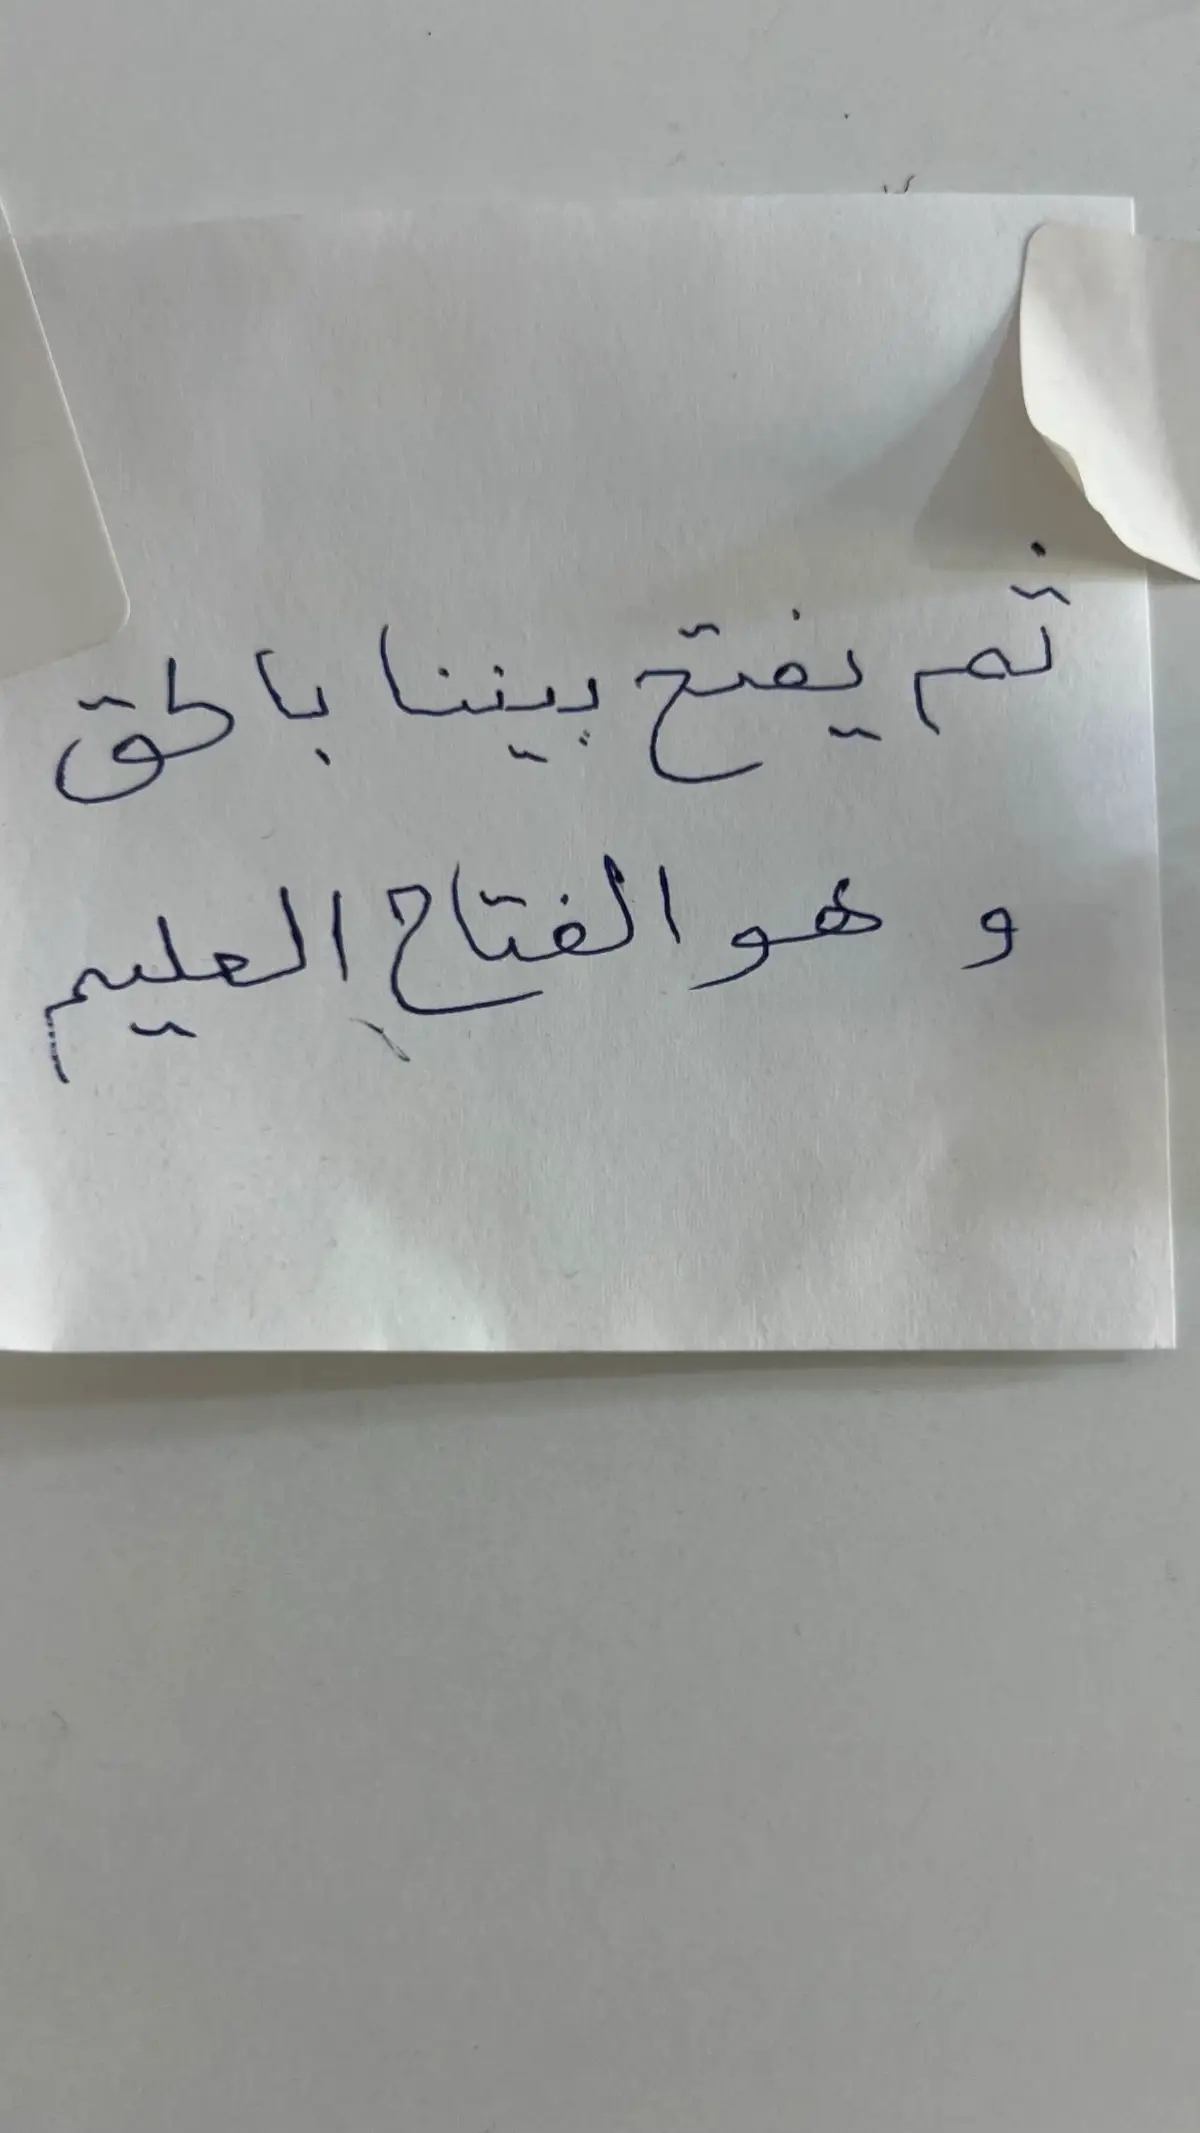 ثم يفتح بيننا بالحق
و هو الفتاح العليم